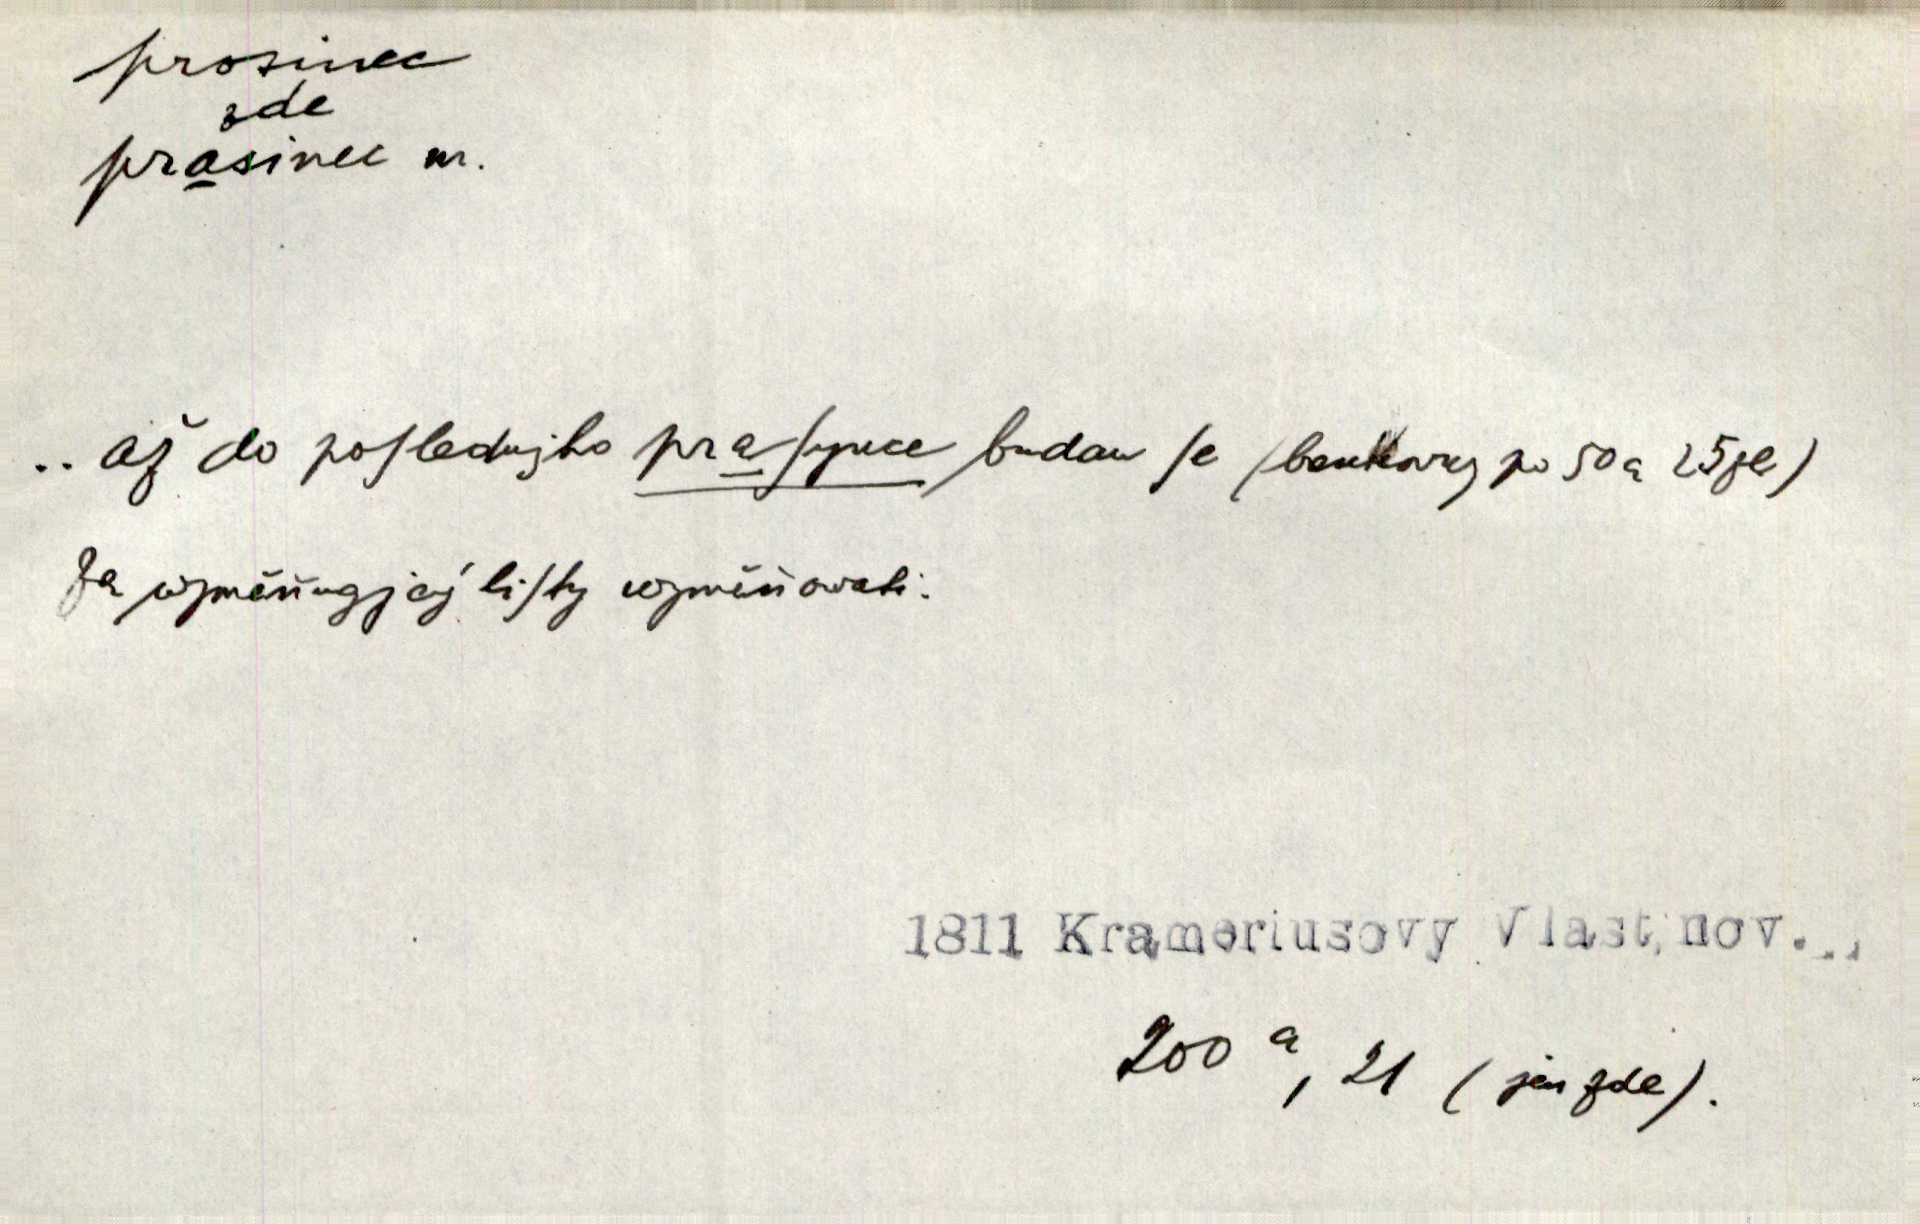 prosinec
zde
prasinec m.
.. až do posledujho prasynce budau se (bankovky po 50 a 25 zl)
Za wyměňugjcý listy wyměňovati.
1811 Krameriusovy Vlast. nov...
200 a, 21 (jen zde).